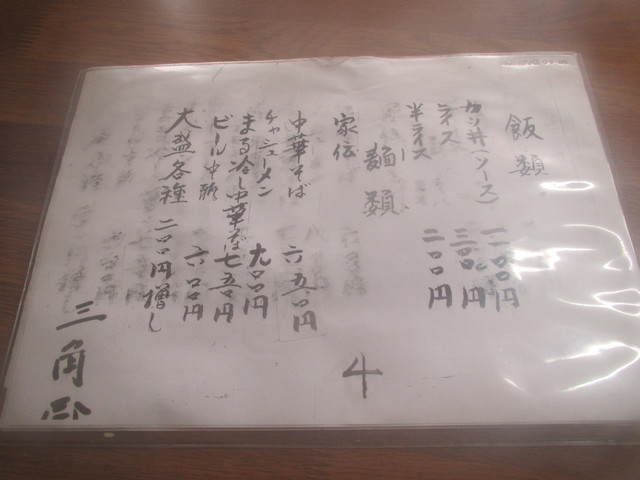 飯類
カツ丼(ソース) 一、二〇〇円
ライス 三〇〇円
半ライス 二〇〇円
麺類
家伝
中華そば 六五〇円
チャシューメン 九〇〇円
まる冷し中華そば 七五〇円
ビール中瓶 六〇〇円
大盛各種 二〇〇円増し
三角
4